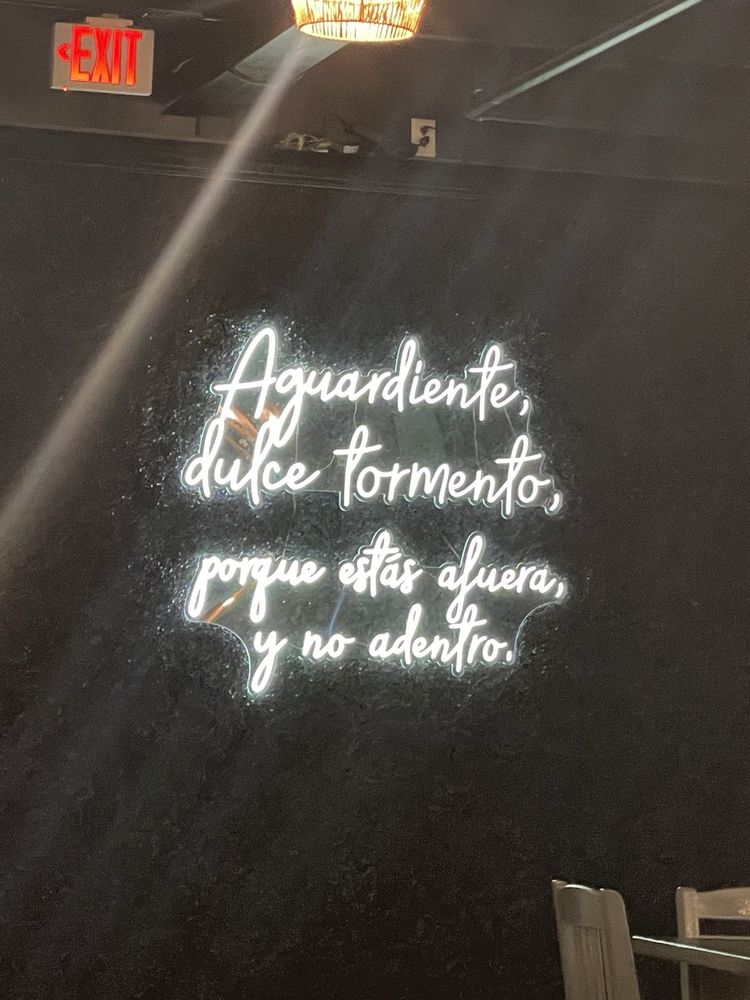 EXIT
Aguardiente,
dulce tormento,
porque estás afuera,
y no adentro.